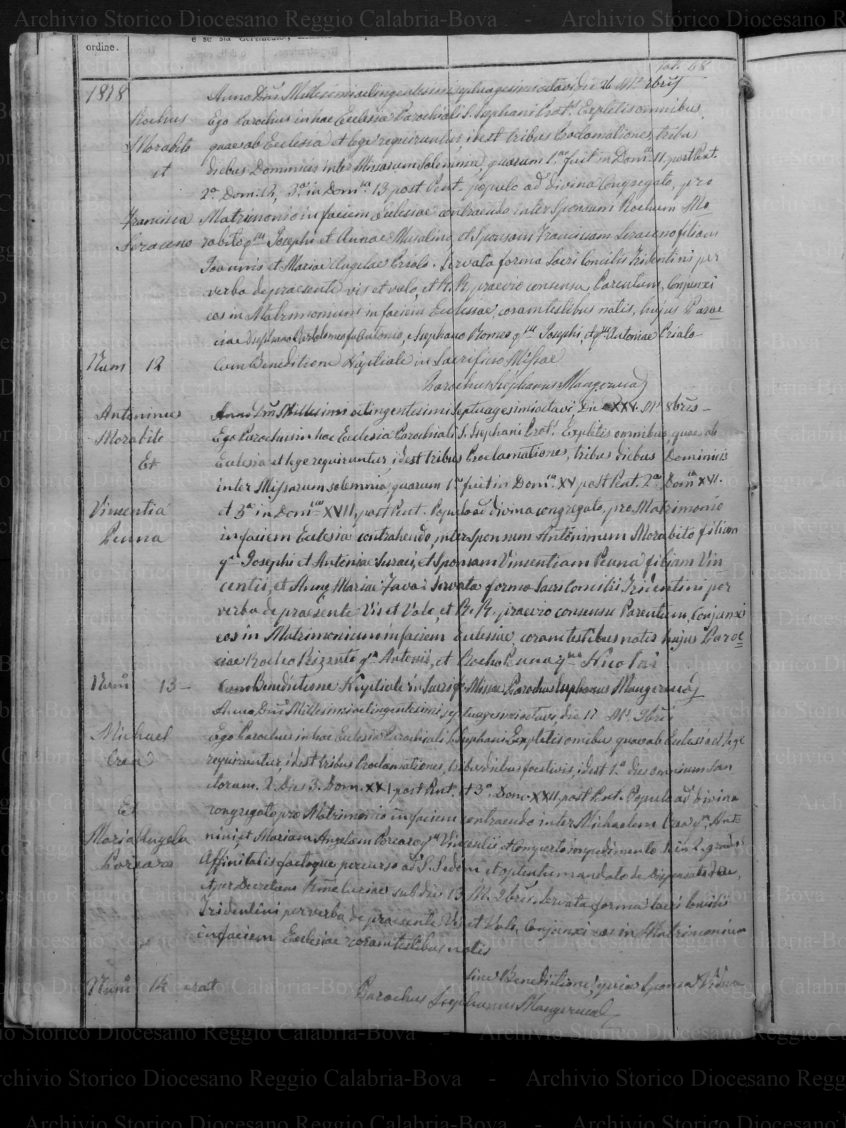 Archivio Storico Diocesano Reggio Calabria-Bova - Archivio Storico Diocesano Reggio
ordine.
fol. 48
1878
Rochus
Morabito
et
Francisca
Siracuso
Num 12
Anno Dni Millesimi octingentesimi septuagesimi octavi die 26 Ms 8bris
Ego Parochus in hac Ecclesia Parochiali S. Stephani Prot. Expletis omnibus,
quae ab Ecclesia et lege requiruntur, idest tribus Proclamationes, tribus
diebus Dominicis inter Missarum Solemnia, quarum 1ª fuit in Domca 11, post Pent.
2ª Dom. 12, 3ª in Domca 13 post Pent, populo ad Divina Congregato, pro
Matrimonio in faciem Ecclesiae contraendo inter Sponsum Rochum Mo
rabito qm Josephi et Annae Musolino, et Sponsam Franciscam Siracuso filiam
Joannis et Mariae Angelae Priolo. Servata forma Sacri Concilii Tridentini per
verba de praesente vis et volo, et R. R. praevio consensu Parentum, Conjunxi
eos in Matrimonium in faciem Ecclesiae, coram testibus notis, hujus Paroe
ciae Bartolomeo Antonio, e Stephano Romeo qm Josephi, et qm Antoniae Priolo
Cum Beneditione Nuptiale in Sacrificio Missae
Parochus Stephanus Mangeruca
Antoninus
Morabito
Et
Vincentia
Penna
Num 13 -
Anno Dni Millesimi octingentesimi Septuagesimi octavi Die XXV. Ms 8bris -
Ego Parochus in hac Ecclesia Parochiali S. Stephani Prot. Expletis omnibus, quae ab
Eclesia et lege requiruntur idest tribus Proclamationes, tribus diebus Dominicis
inter Missarum solemnia quarum 1ª fuit in Domca XV post Pent. 2ª Domca XVI.
et 3ª in Domca XVII, post Pent. Populo ad divina congregato, pro Matrimonio
in faciem Eclesia contrahendo, inter Sponsum Antoninum Morabito filium
qm Josephi et Antoniae Suraci, et Sponsam Vincentiam Penna filiam Vin
centii, et Anne Mariae Fava: Servata forma Sacri Concilii Tridentini per
verba de praesente Vis et Volo, et R. R. praevio consensu Parentum, Conjunxi
eos in Matrimonium in faciem Eclesiae, coram testibus notis hujus Paroe
ciae Rocho Rizzuto qm Antonii, et Rocho Penna qm Nicolai
Cum Benedictione Nuptiale in Sacrificio Missae Parochus Stephanus Mangeruca
Michael
Crea
Et
Maria Angela
Porcaro
Num 14 erat
Anno Dni Millesimi octingentesimi septuagesimi octavi, die 17 Ms 9bris
Ego Parochus in hac Ecclesia Parochiali S. Stephani Expletis omibus quae ab Eclesia et lege
requiruntur idest tribus Proclamationes, tribus diebus festivis, idest 1ª dies omnium San
ctorum. 2 Dies 3. Dom. XXI post Pent. et 3ª Dom. XXII, post Pent. Populo ad divina
congregato, pro Matrimonio in faciem contraendo inter Michaelem Crea qm Anto
nini, et Mariam Angelam Porcaro qm Vincentii et comperto impedimento in 2. gradu
Affinitatis factoque percurso ad S. Sedem et optentu mandato de Dispensatione,
et per Decretum Rme Curiae sub die 13 Ms 9bris, Servata forma Sacri Concilii
Tridentini per verba de praesente Vis et Volo, Conjunxi eos in Matrimonium
in faciem Eclesiae coram testibus notis
sine Beneditione, quia Sponsa Vidua
Parochus Stephanus Mangeruca